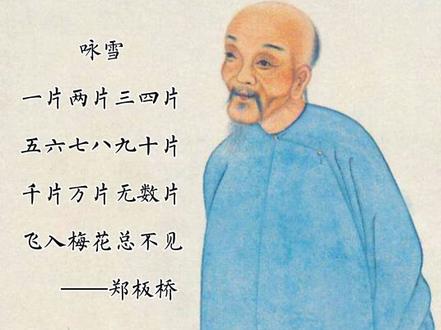 咏雪
一片两片三四片
五六七八九十片
千片万片无数片
飞入梅花总不见
——郑板桥